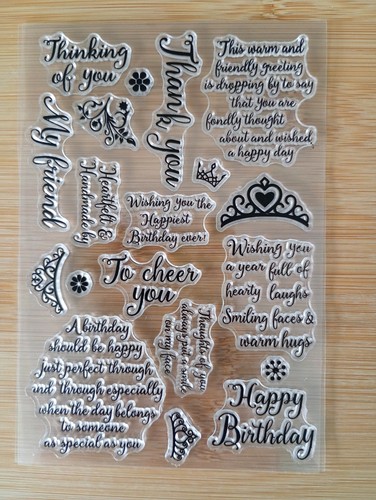 Thinking
of you
Thank you
This warm and
friendly greeting
is dropping by to say
that you are
fondly thought
about and wished
a happy day
My friend
Heartfelt &
Handmade by
Wishing you the
Happiest
Birthday ever!
To cheer
you
Wishing you
a year full of
hearty laughs
Smiling faces &
warm hugs
Thoughts of you
always put a smile
on my face
A birthday
should be happy
just perfect through
and through especially
when the day belongs
to someone
as special as you
Happy
Birthday